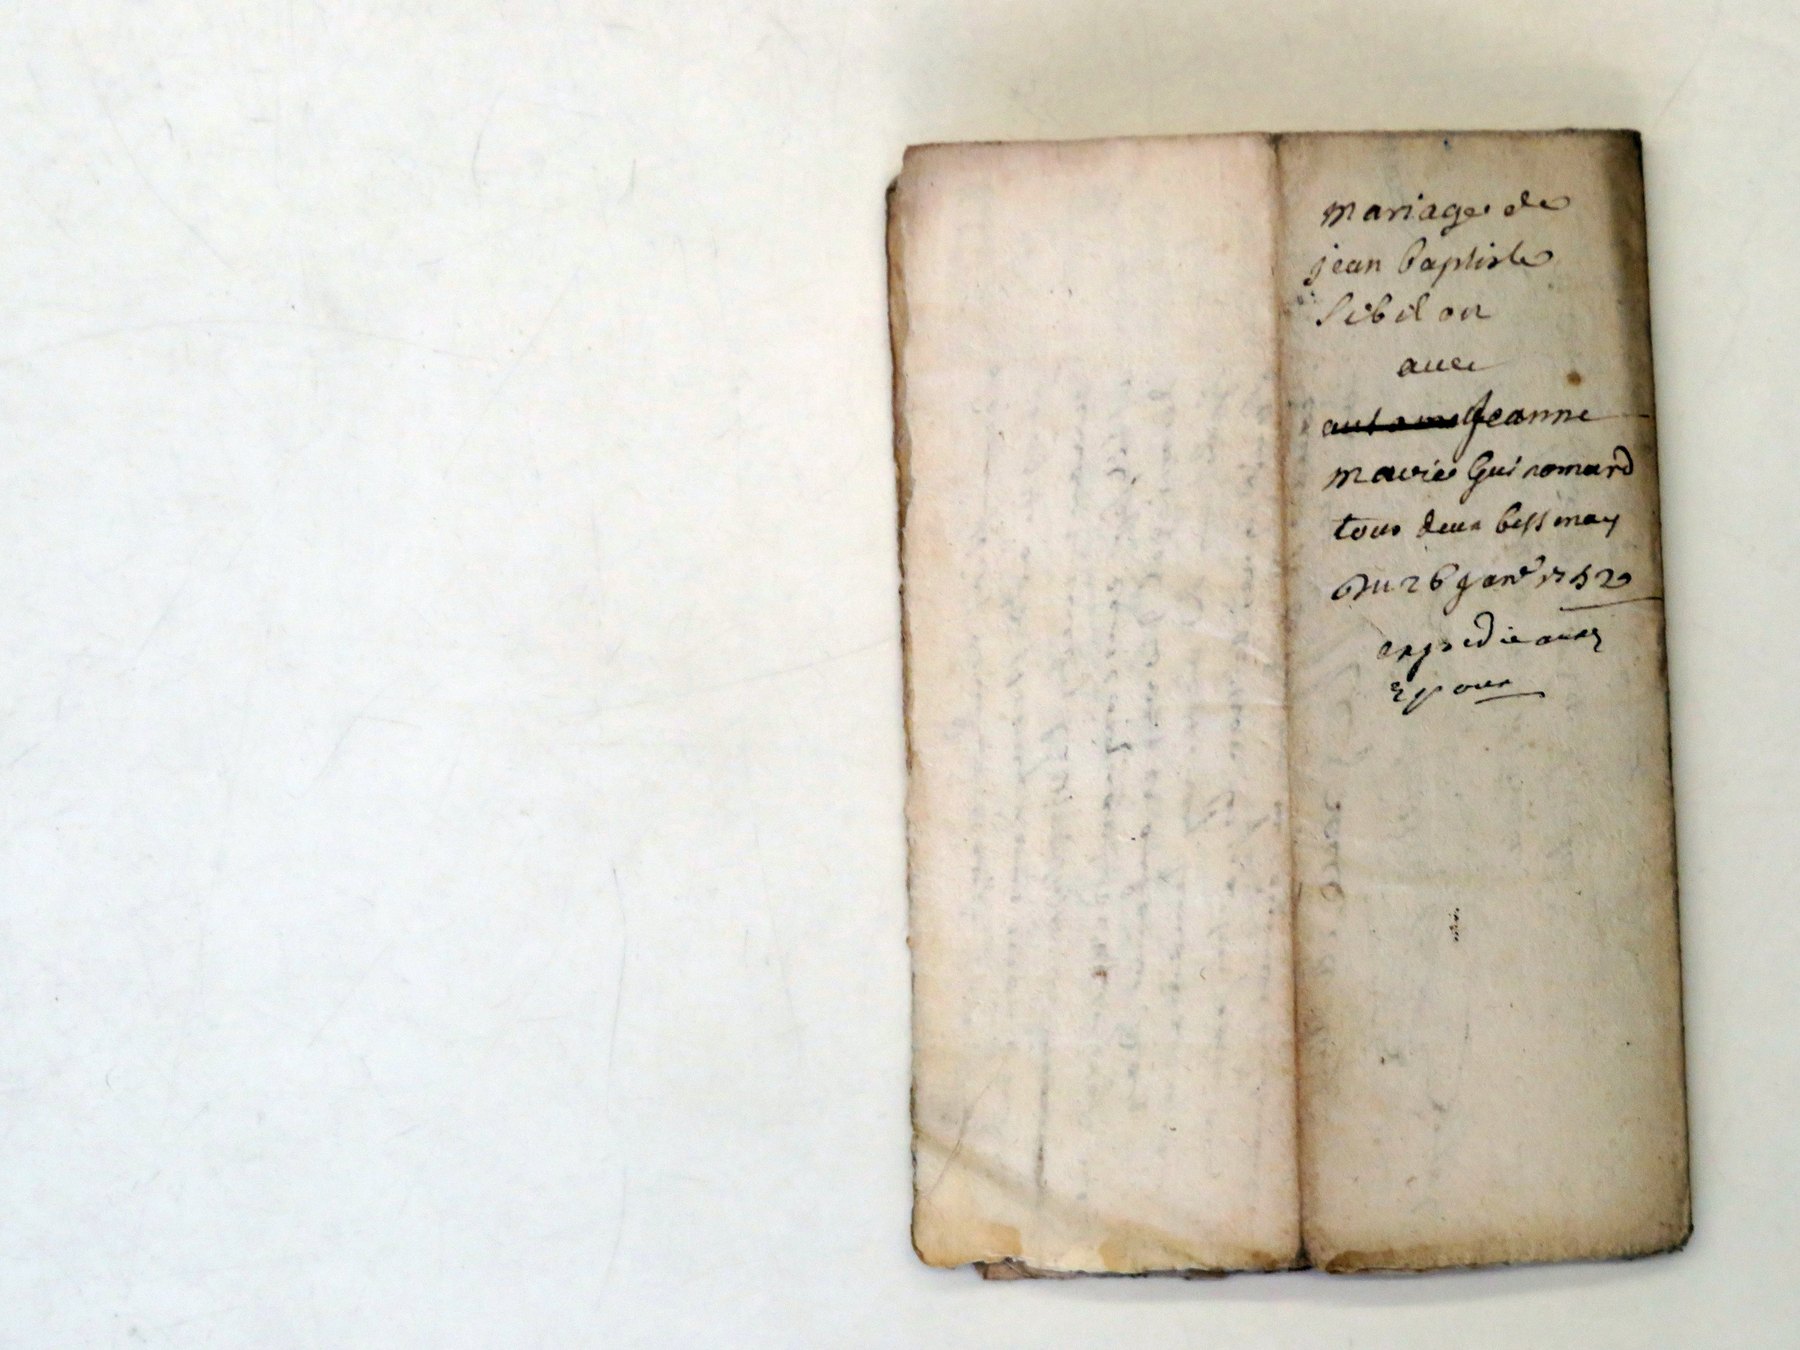 mariage de
jean baptiste
Sibilon
avec
Jeanne
marie Guinomard
tous deux bessenay
Du 26 janr 1752
expedie aux
Epoux